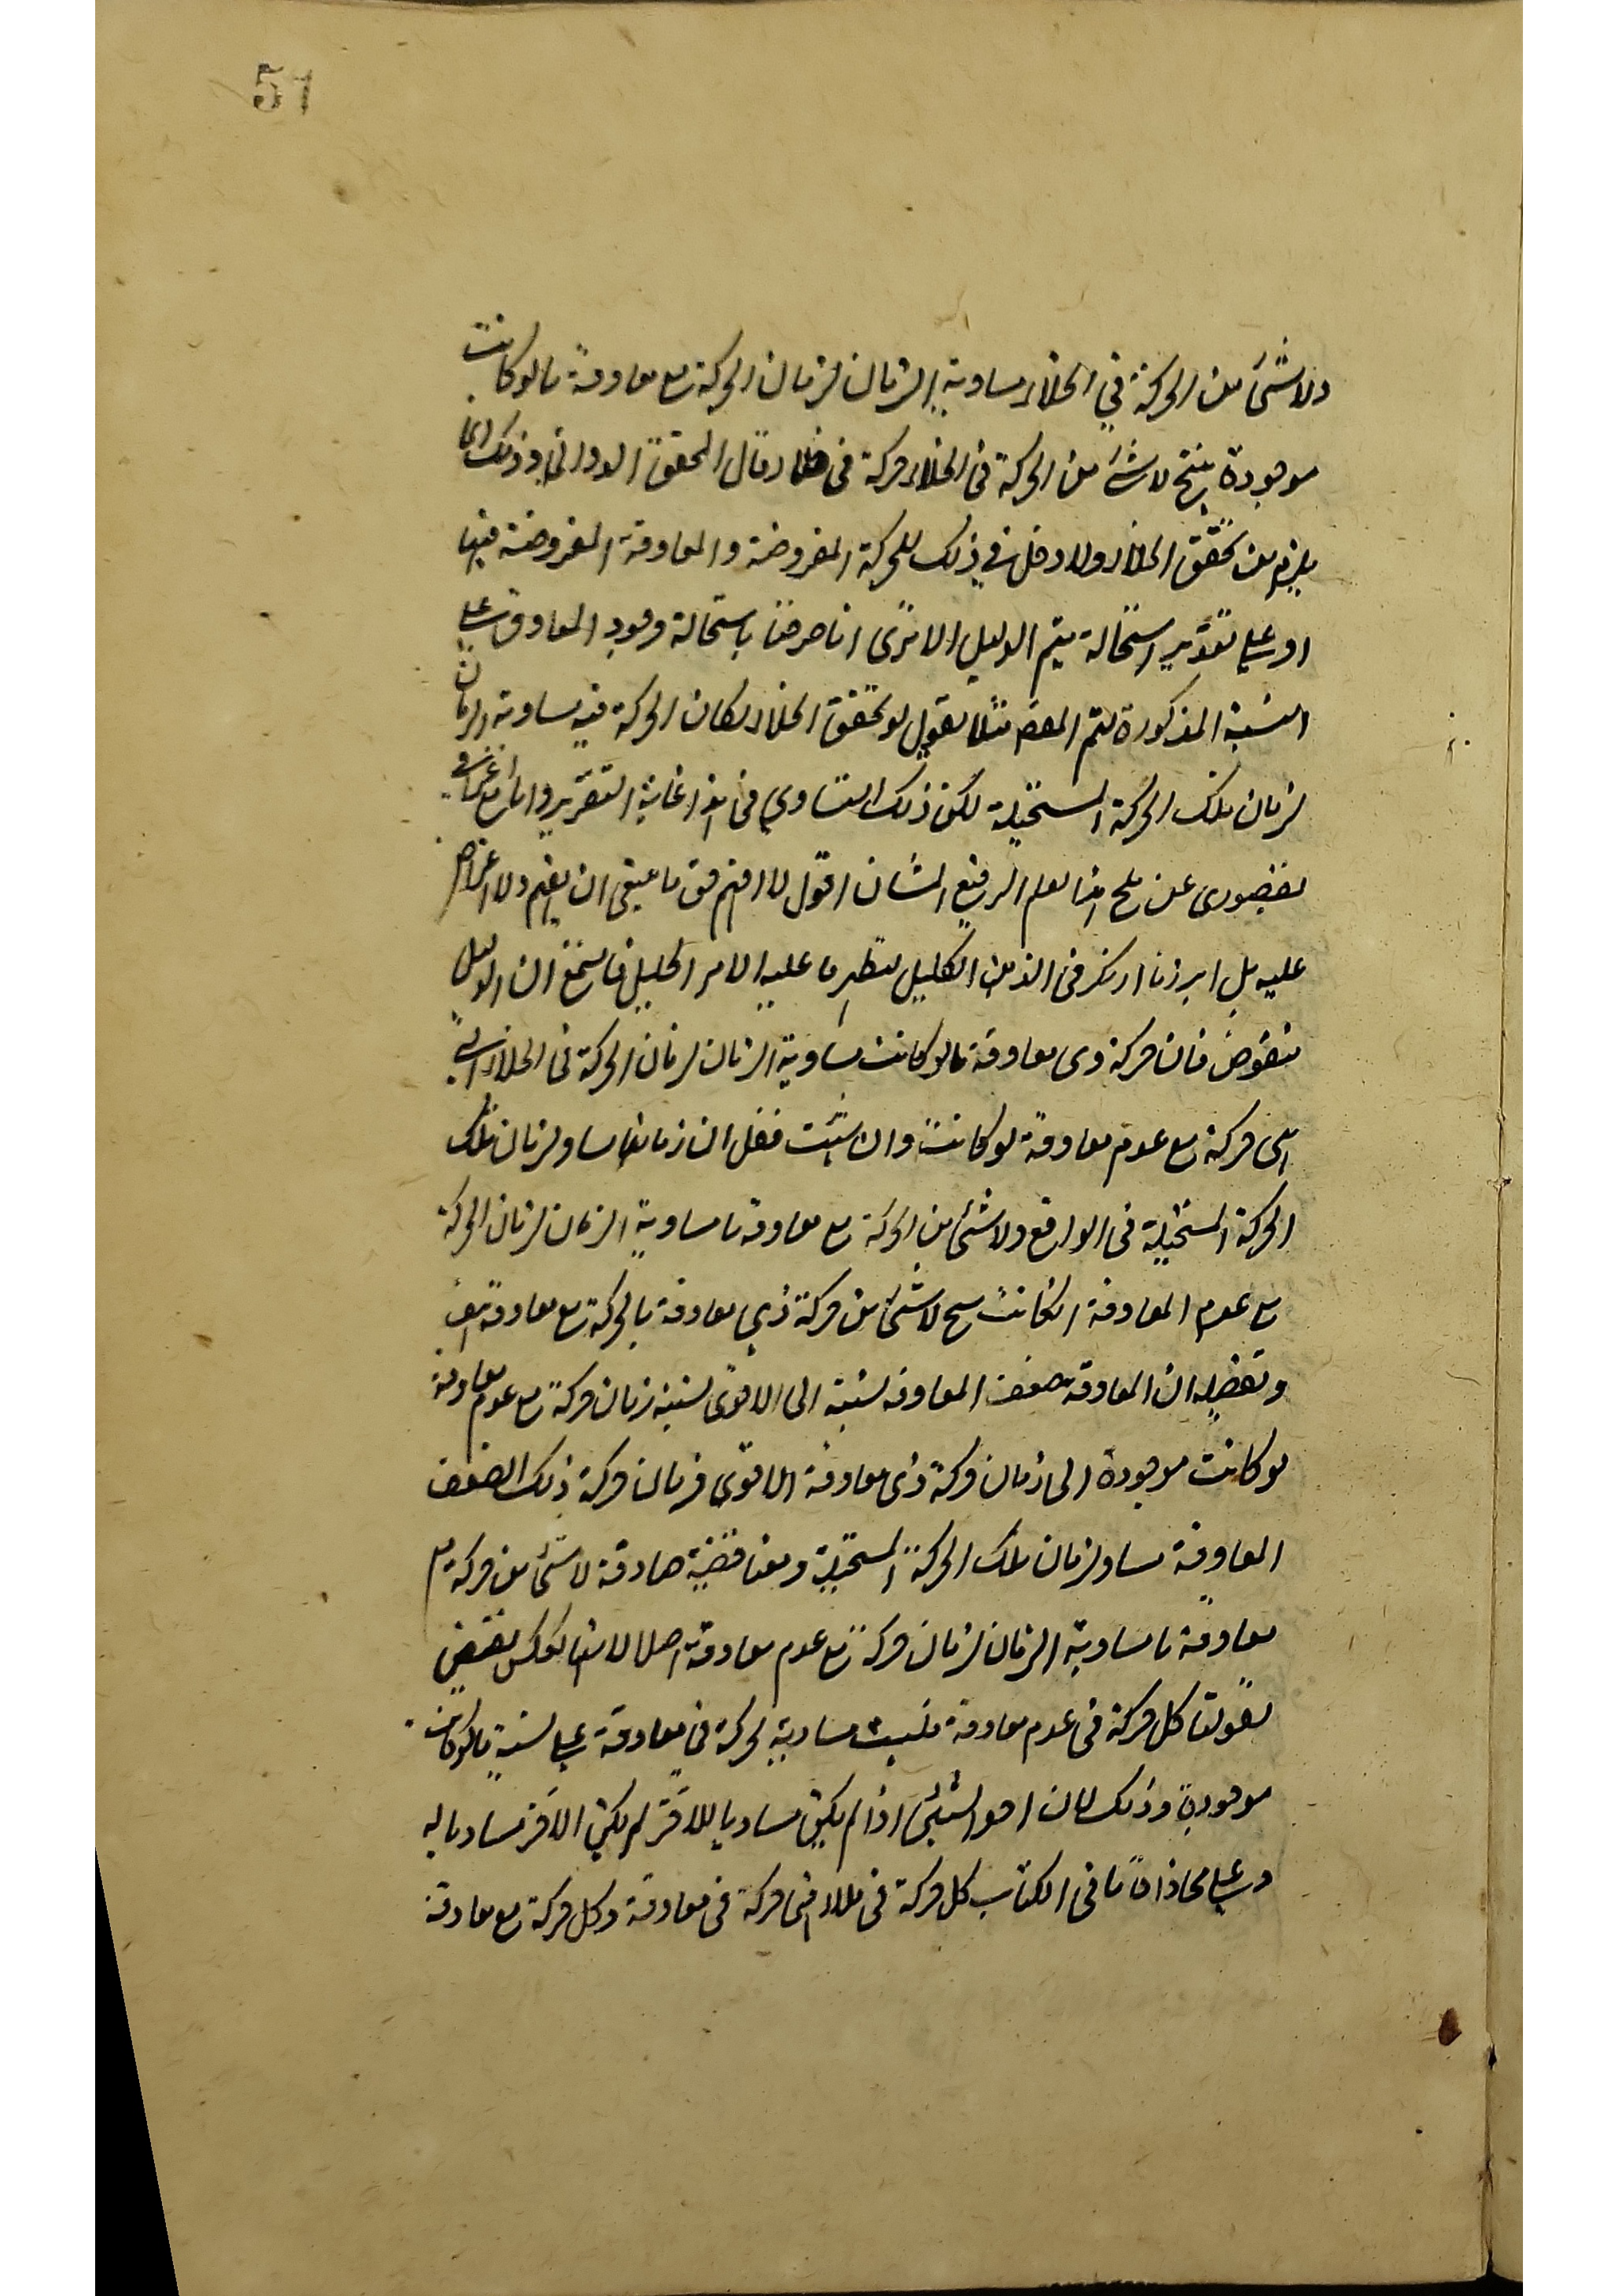 51
ولا شئ من الحركة في الخلاء مساوية الزمان لزمان الحركة مع معاوقة ما لو كانت
موجودة ينتج لا شئ من الحركة في الخلاء حركة في خلاء وقال المحقق الدواني وذلك انما
يلزم من تحقق الخلاء ولا دخل في ذلك للحركة المفروضة والمعاوقة المفروضة فيها
او على تقدير استحالة يتم الدليل الا ترى انا صرحنا باستحالة وجود المعاوق على
النسبة المذكورة لتم مثلا نقول لو تحقق الخلاء لكان الحركة فيه مساوية الزمان
لزمان تلك الحركة المستحيلة لكن ذلك التساوي في غاية التقرير وانا مع اعترافي
بقصوري عن الرفيع الشان اقول لا افهم حق ما ينبغي ان يفهم ولا اعتراض
عليه بل ابرزنا في الذهن الكليل ما عليه الامر الجليل ان الدليل
منقوض فان حركة ذي معاوقة ما لو كانت مساوية الزمان لزمان الحركة في الخلاء التي
هي حركة مع عدم معاوقة لو كانت وان شئت فقل ان زمانها مساو لزمان تلك
الحركة المستحيلة في الواقع ولا شئ من الحركة مع معاوقة ما مساوية الزمان لزمان الحركة
مع عدم المعاوقة ان كانت لا شئ من حركة ذي معاوقة بالحركة مع معاوقة
وتفصيله ان المعاوقة ضعف المعاوقة نسبته الى الاقوى نسبة زمان حركة مع عدم معاوقة
لو كانت موجودة الى زمان حركة ذي معاوقة الاقوى فزمان حركة ذلك الضعف
المعاوقة مساو لزمان تلك الحركة المستحيلة ومعنا قضية صادقة لا شئ من حركة مع
معاوقة ما مساوية الزمان لزمان حركة مع عدم معاوقة اصلا نقيض
لقولنا كل حركة في عدم معاوقة مساوية لحركة في معاوقة على نسبة ما لو كانت
موجودة وذلك لان احد الشيئين اذا لم يكن مساويا للاخر لم يكن الاخر مساويا له
وعلى محاذاة ما في الكتاب كل حركة في ملاء فهي حركة في معاوقة وكل حركة مع معاوقة